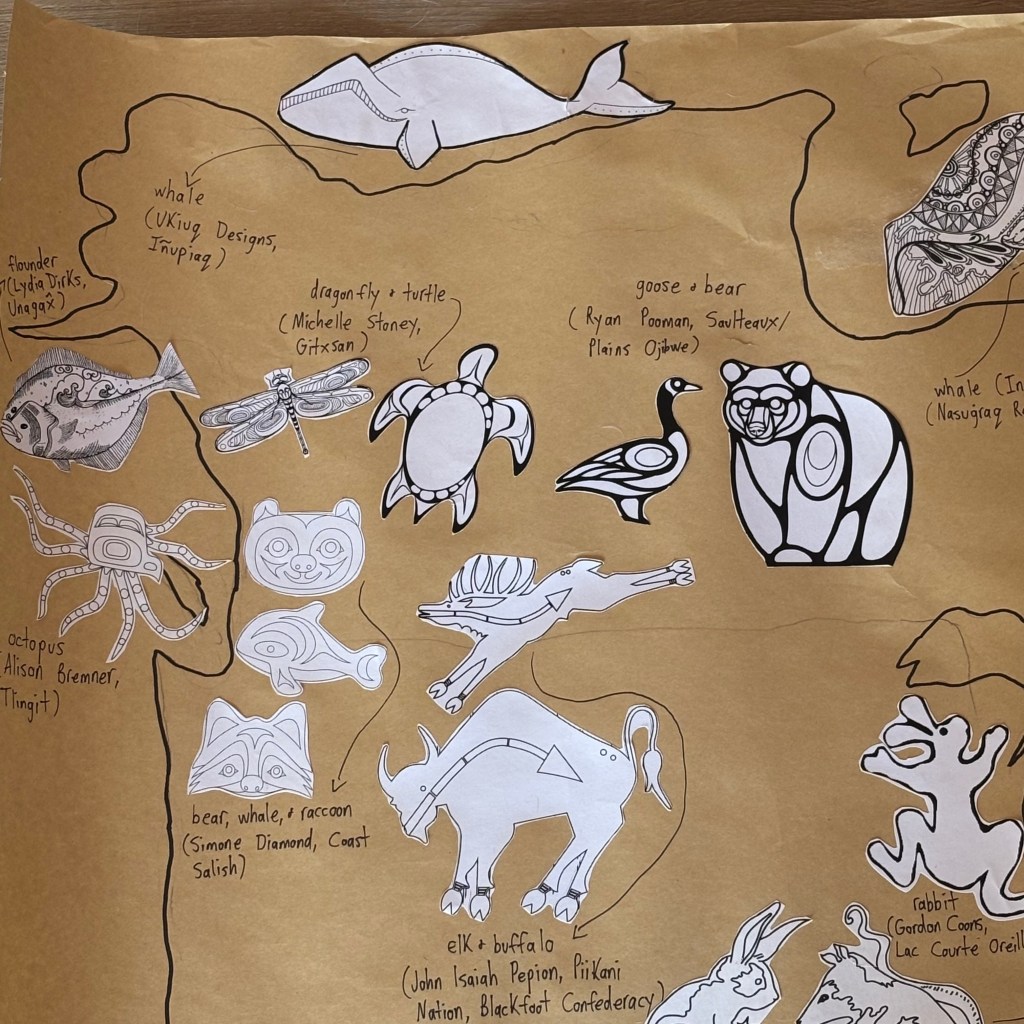 whale
(UKiuq Designs,
Iñupiaq)
flounder
(Lydia Dirks,
Unagax̂)
dragonfly & turtle
(Michelle Stoney,
Gitxsan)
goose & bear
(Ryan Pooman, Saulteaux/
Plains Ojibwe)
whale (In
(Nasuġraq R
octopus
(Alison Bremner,
Tlingit)
bear, whale, & raccoon
(Simone Diamond, Coast
Salish)
elk & buffalo
(John Isaiah Pepion, Piikani
Nation, Blackfoot Confederacy)
rabbit
(Gordon Coons,
Lac Courte Oreill